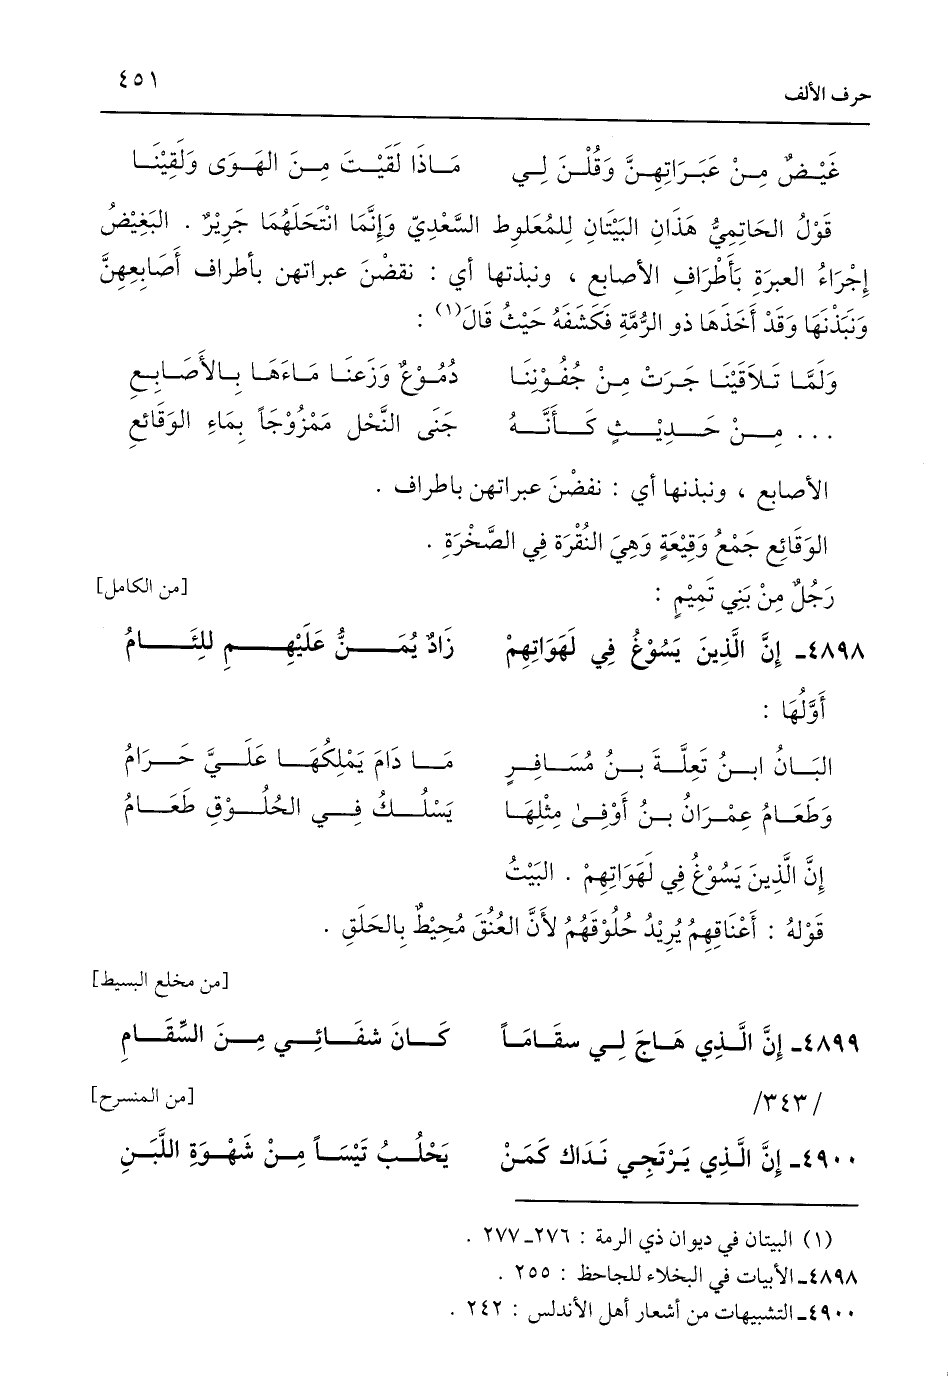 حرف الألف ٤٥١
غَيْضٌ مِنْ عَبَرَاتِهِنَّ وَقُلْنَ لِي مَاذَا لَقَيْتَ مِنَ الهَوَى وَلَقِيْنَا
قَوْلُ الحَاتِمِيُّ هَذَانِ البَيْتَانِ لِلمُعَلوطِ السَّعْدِيّ وَإِنَّمَا انْتَحَلَهُمَا جَرِيْرٌ . البَغِيْضُ
إِجْرَاءُ العبرَةِ بَأَطْرَافِ الأصابع ، ونبذتها أي : نفضْنَ عبراتهن بأطراف أَصَابِعِهِنَّ
وَنَبَذْنَهَا وَقَدْ أَخَذَهَا ذو الرُّمَّةِ فَكَشَفَهُ حَيْثُ قَالَ(١) :
وَلَمَّا تَلاَقَيْنَا جَرَتْ مِنْ جُفُوْنِنَا دُمُوْعٌ وَزَعنَا مَاءَهَا بِالأَصَابِعِ
... مِنْ حَدِيْثٍ كَأَنَّهُ جَنَى النَّحْل مَمْزُوْجَاً بِمَاءِ الوَقَائعِ
الأصابع ، ونبذنها أي : نفضْنَ عبراتهن باطراف .
الوَقَائِع جَمْعُ وَقِيْعَةٍ وَهِيَ النُقْرَة فِي الصَّخْرَةِ .
رَجُلٌ مِنْ بَنِي تَمِيْمٍ : [من الكامل]
٤٨٩٨ـ إِنَّ الَّذِينَ يَسُوْغُ فِي لَهَوَاتِهِمْ زَادٌ يُمَنُّ عَلَيْهِمِ للِئَامُ
أَوَّلُهَا :
البَانُ ابنُ تَعِلَّةَ بنُ مُسَافِرٍ مَا دَامَ يَمْلِكُهَا عَلَيَّ حَرَامُ
وَطَعَامُ عِمْرَانُ بنُ أَوْفِىٰ مِثْلِهَا يَسْلُكُ فِي الحُلُوْقِ طَعَامُ
إِنَّ الَّذِينَ يَسُوْغُ فِي لَهَوَاتِهِمْ . البَيْتُ
قَوْلهُ : أَعْنَاقِهِمُ يُرِيْدُ حُلُوْقَهُمُ لأَنَّ العُنُقَ مُحِيْطٌ بِالحَلَقِ .
[من مخلع البسيط]
٤٨٩٩ـ إِنَّ الَّذِي هَاجَ لِي سقَامَاً كَانَ شفَائِي مِنَ السِّقَامِ
/٣٤٣/ [من المنسرح]
٤٩٠٠ـ إِنَّ الَّذِي يَرْتَجِي نَدَاكَ كَمَنْ يَحْلُبُ تَيْسَاً مِنْ شَهْوَةِ اللَّبَنِ
(١) البيتان في ديوان ذي الرمة : ٢٧٦ـ٢٧٧ .
٤٨٩٨ـ الأبيات في البخلاء للجاحظ : ٢٥٥ .
٤٩٠٠ـ التشبيهات من أشعار أهل الأندلس : ٢٤٢ .